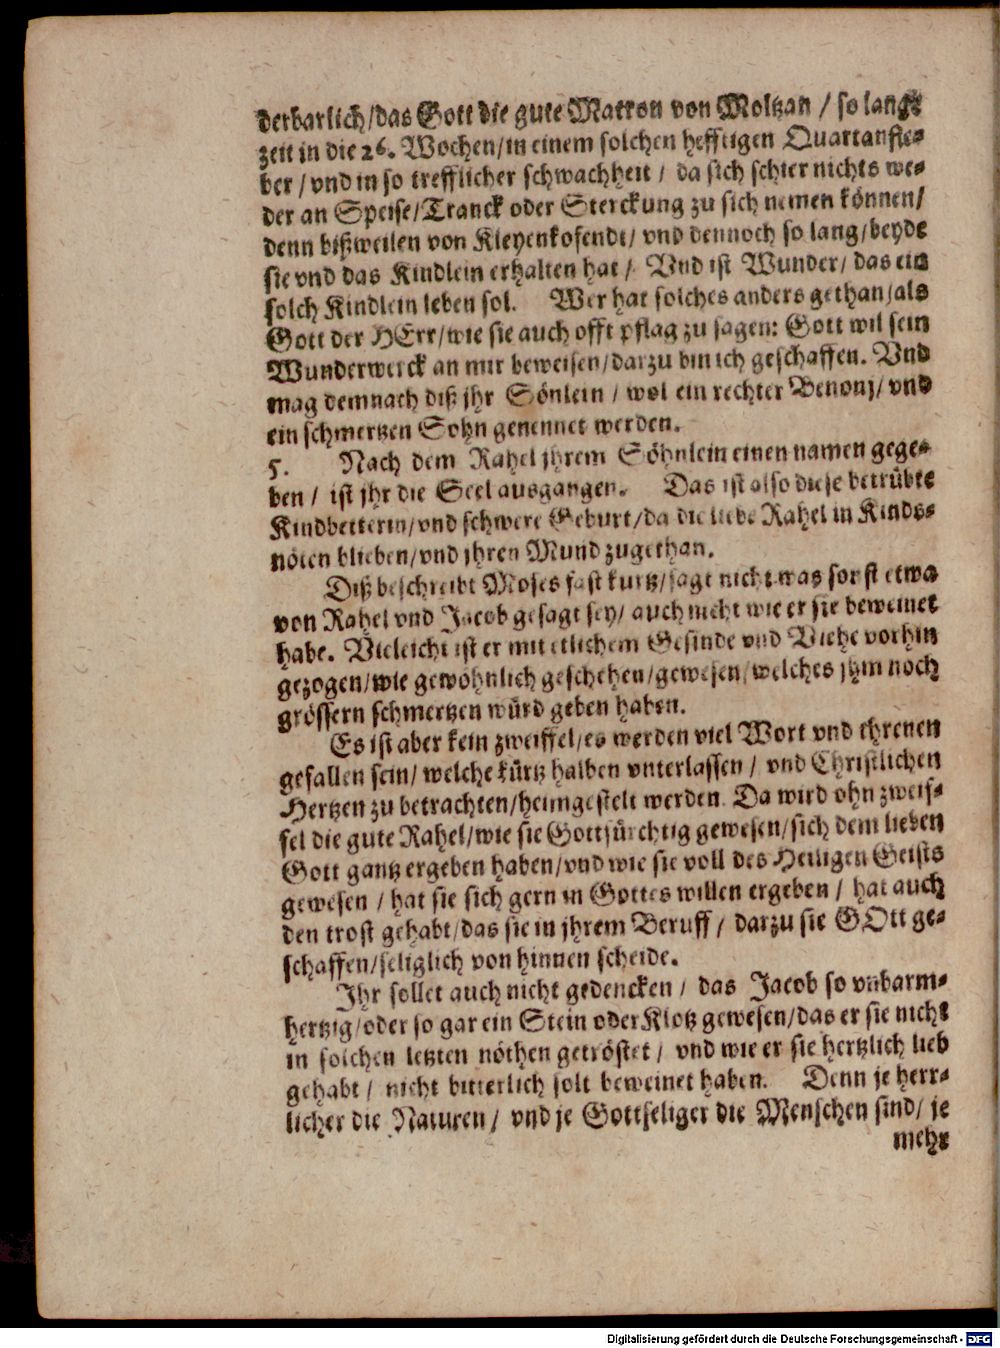 derbarlich/das Gott die gute Matron von Moltzan / so lange
zeit in die 26. Wochen/in einem solchen hefftigen Quartanfie-
ber / vnd in so trefflicher schwachheit / da sich schier nichts we-
der an Speise/Tranck oder Sterckung zu sich nemen können/
denn bißweilen von Kleyenkofendt/ vnd dennoch so lang/beyde
sie vnd das Kindlein erhalten hat / Vnd ist Wunder/ das ein
solch Kindlein leben sol. Wer hat solches anders gethan/als
Gott der HErr/wie sie auch offt pflag zu sagen: Gott wil sein
Wunderwerck an mir beweisen/darzu bin ich geschaffen. Vnd
mag demnach diß jhr Sönlein / wol ein rechter Benonj/ vnd
ein schmertzen Sohn genennet werden.
5. Nach dem Rahel jhrem Söhnlein einen namen gege-
ben / ist jhr die Seel ausgangen. Das ist also diese betrübte
Kindbetterin/vnd schwere Geburt/da die liebe Rahel in Kinds-
nöten blieben/vnd jhren Mund zugethan.
Diß beschreibt Moses fast kurtz/sagt nicht was sonst etwa
von Rahel vnd Jacob gesagt sey/ auch nicht wie er sie beweinet
habe. Vieleicht ist er mit etlichem Gesinde vnd Viehe vorhin
gezogen/wie gewöhnlich geschehen/gewesen/welches jhm noch
grössern schmertzen würd geben haben.
Es ist aber kein zweiffel/es werden viel Wort vnd threnen
gefallen sein/ welche kürtz halben vnterlassen / vnd Christlichen
Hertzen zu betrachten/heimgestelt werden. Da wird ohn zweif-
fel die gute Rahel/wie sie Gottfürchtig gewesen/sich dem lieben
Gott gantz ergeben haben/vnd wie sie voll des Heiligen Geists
gewesen / hat sie sich gern in Gottes willen ergeben / hat auch
den trost gehabt/das sie in jhrem Beruff / darzu sie GOtt ge-
schaffen/seliglich von hinnen scheide.
Ihr sollet auch nicht gedencken / das Jacob so vnbarm-
hertzig/oder so gar ein Stein oder Klotz gewesen/das er sie nicht
in solchen letzten nöthen getröstet / vnd wie er sie hertzlich lieb
gehabt / nicht bitterlich solt beweinet haben. Denn je herr-
licher die Naturen / vnd je Gottseliger die Menschen sind/ je
mehr
Digitalisierung gefördert durch die Deutsche Forschungsgemeinschaft - DFG